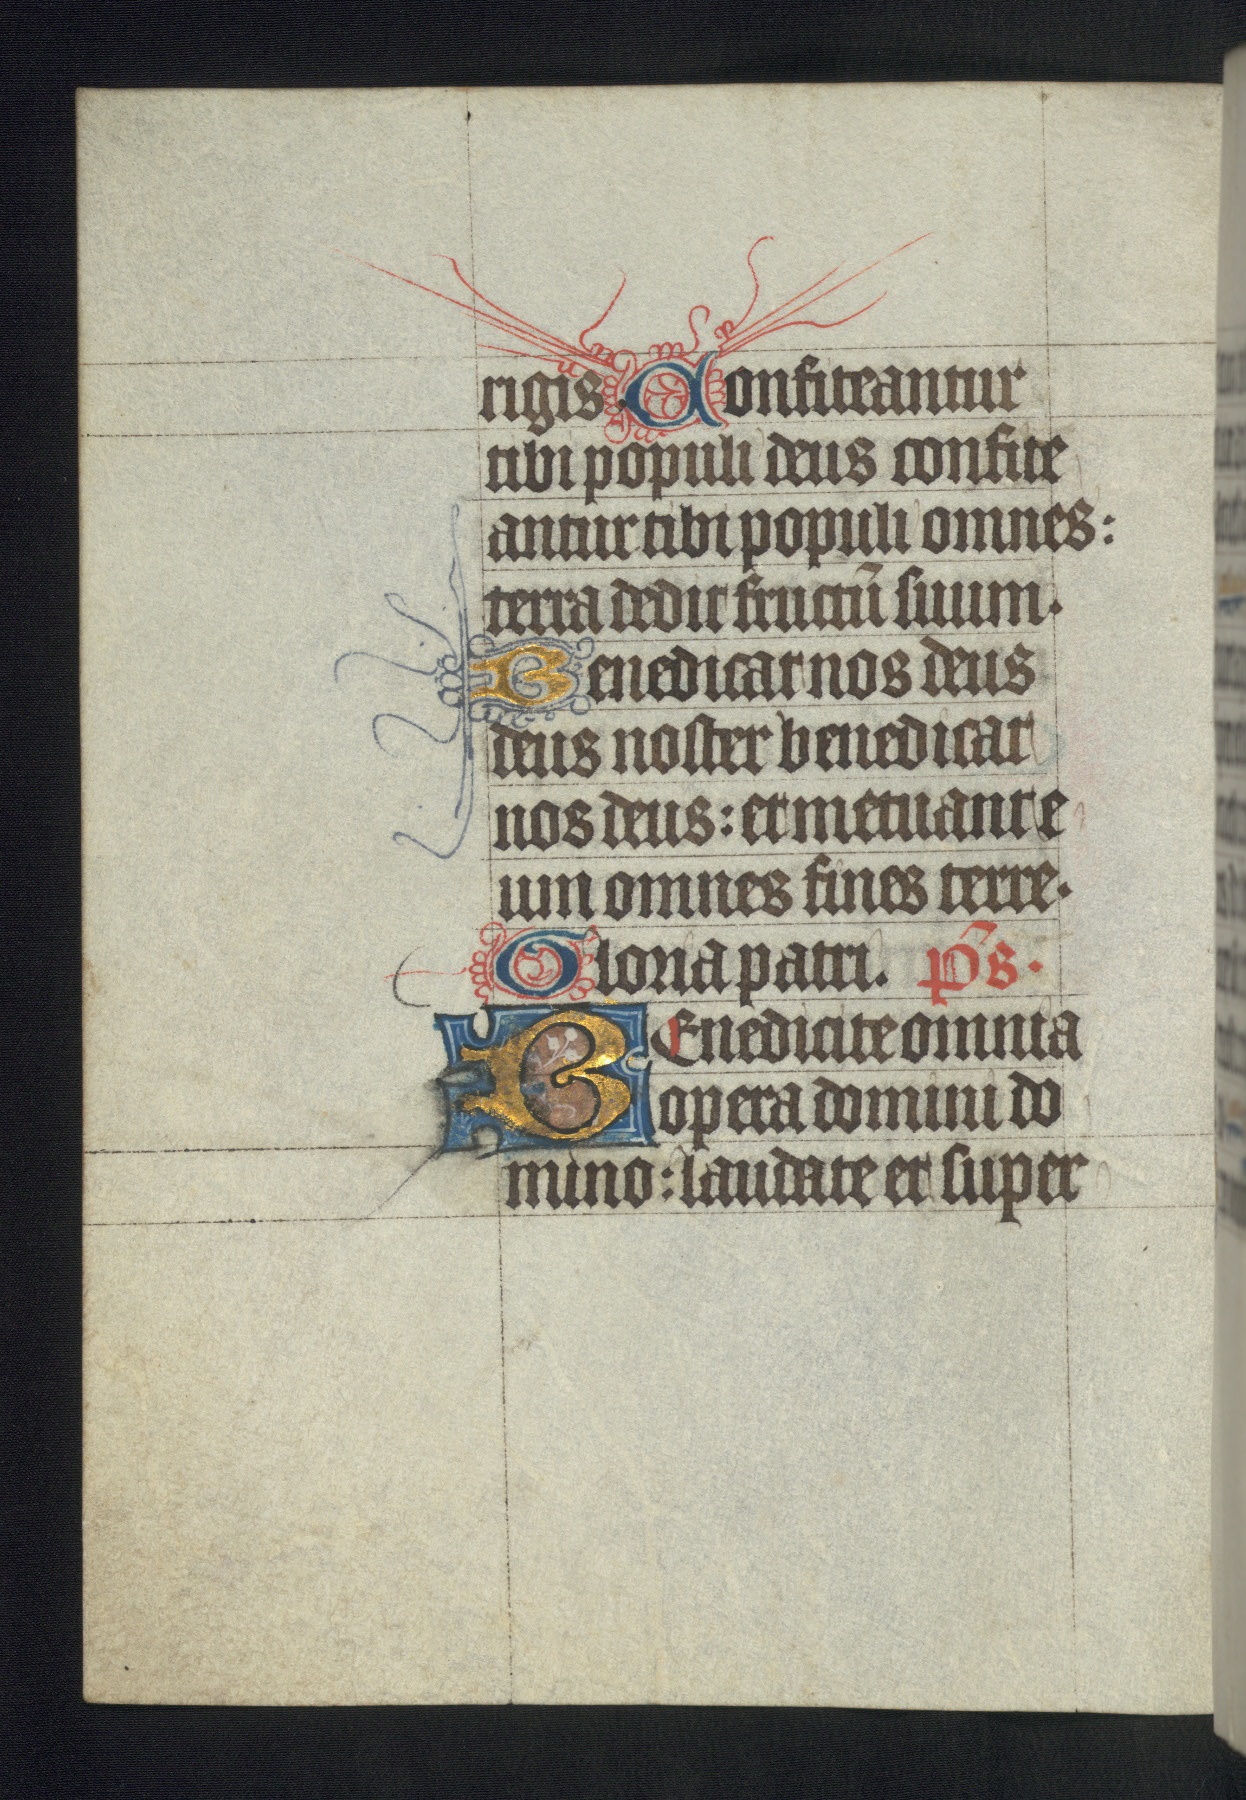 rigis. Confiteantur
tibi populi deus confite
antur tibi populi omnes:
terra dedit fructū suum.
Benedicat nos deus
deus noster benedicat
nos deus: et metuant e
um omnes fines terre.
Gloria patri. p̄s.
BEnedicite omnia
opera domini do
mino: laudate et super